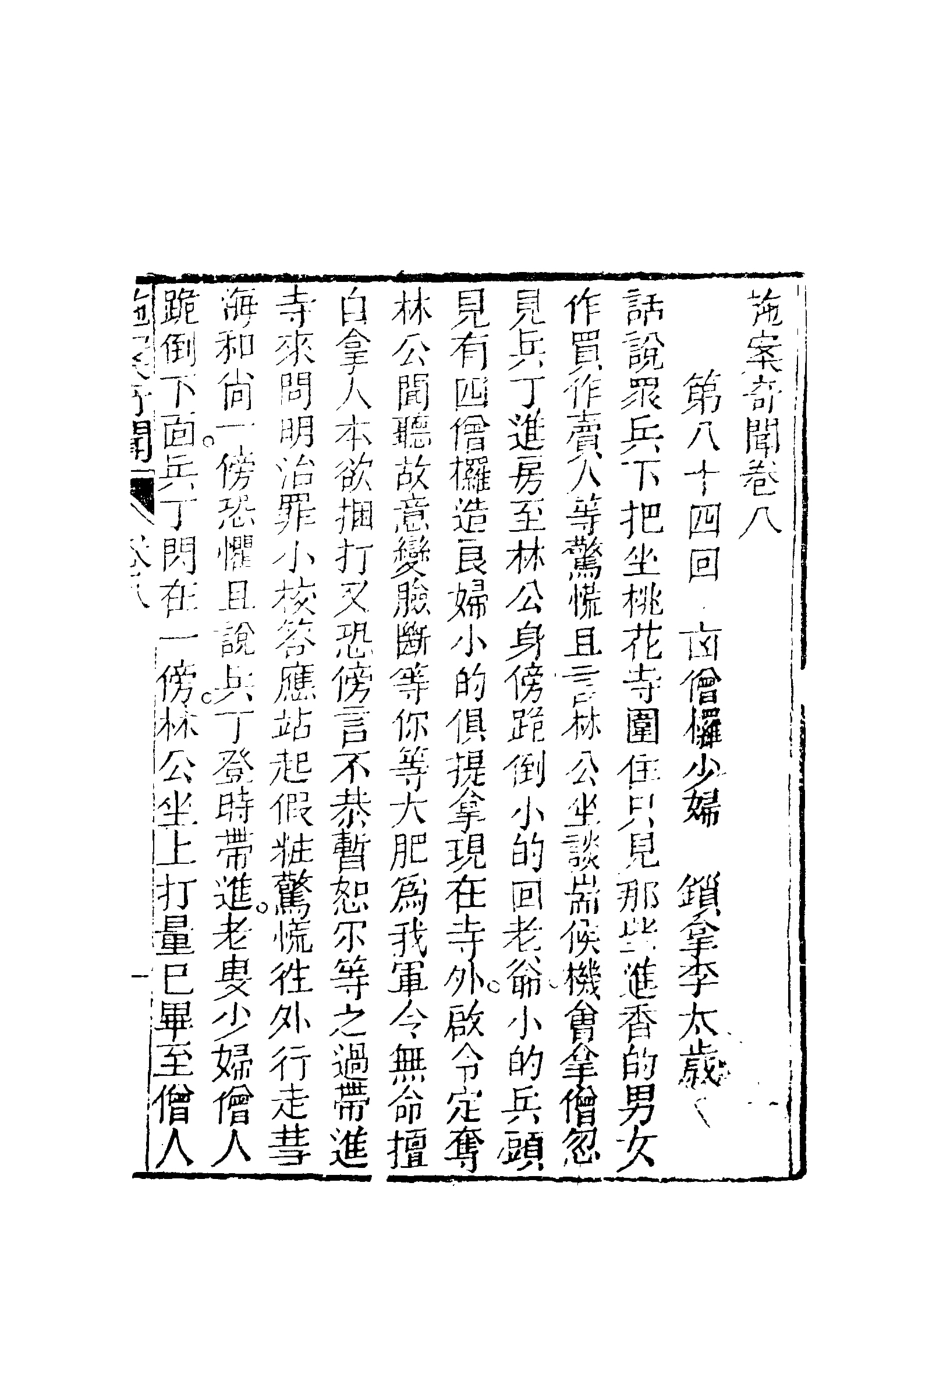 施案奇聞卷八
第八十四回 凶僧欏少婦 鎖拿李太歲
話說衆兵下把坐桃花寺圍住只見那些進香的男女
作買作賣人等驚慌且言林公坐談耑候機會拿僧忽
見兵丁進房至林公身傍跪倒小的回老爺小的兵頭
見有四僧欏造良婦小的俱提拿現在寺外啟令定奪
林公聞聽故意變臉斷等你等大肥為我軍令無命擅
自拿人本欲捆打又恐傍言不恭暫恕尔等之過帶進
寺來問明治罪小校答應站起假粧驚慌徃外行走彗
海和尚一傍恐懼且說兵丁登時帶進老叟少婦僧人
跪倒下面兵丁閃在一傍林公坐上打量巳畢至僧人
施案奇聞 卷八 一